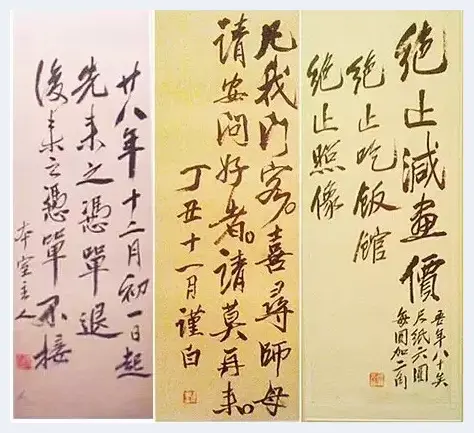 絕止減畫價
絕止吃飯館
絕止照像
吾年八十矣
尺紙六圓
每圓加二角
凡我門客。喜尋師母
請安問好者。請莫再来。
丁丑十一月謹白
廿八年十二月初一日起
先来之憑單退
後来之憑單不接
本室主人